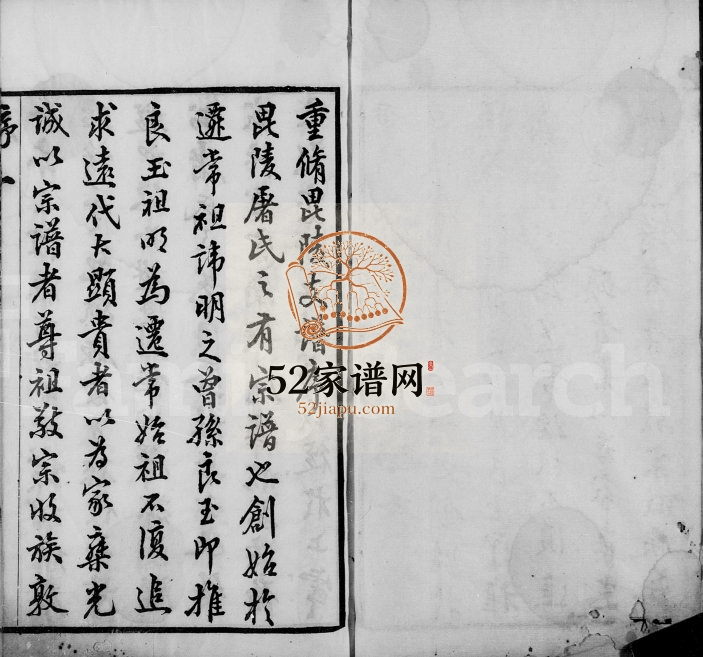 重脩毘陵支譜序
毘陵屠氏之有宗譜也創始於
遷常祖諱明之曾孫良玉即推
良玉祖明為遷常始祖不復追
求遠代大顯貴者以為家乗光
誠以宗譜者尊祖敬宗收族敦
序 一
52家谱网
52jiapu.com
FamilySearch